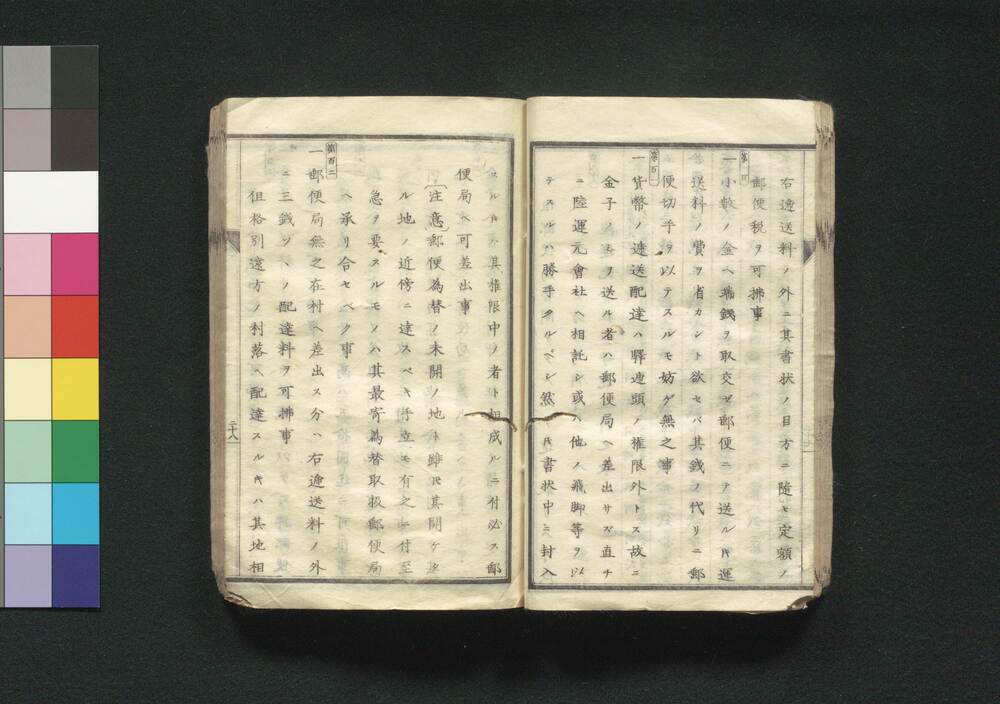 右遞送料ノ外ニ其書状ノ目方ニ隨ヒ定額ノ
郵便税ヲ可拂事
第百
一小數ノ金ヘ端錢ヲ取交ゼ郵便ニテ送ル𪜈運
送料ノ費ヲ省カント欲セバ其錢ノ代リニ郵
便切手ヲ以テスルモ妨ゲ無之事
第百一
一貨幣ノ遞送配達ハ驛遞頭ノ權限外トス故ニ
金子ノミヲ送ル者ハ郵便局ヘ差出サズ直チ
ニ陸運元會社ヘ相託シ或ハ他ノ飛脚等ヲ以
テスルハ勝手タルベシ然𪜈書状中ニ封入
スル𪜈ハ其權限中ノ者ト相成ルニ付必ス郵
便局ヘ可差出事
〔注意〕郵便為替ノ未開ノ地ト雖𪜈其開ケタ
ル地ノ近傍ニ達スベキ仔立モ有之ニ付至
急ヲ要スルモノハ其最寄為替取扱郵便局
ヘ承リ合セベク事
第百二
一郵便局無之在村ヘ差出ス分ハ右遞送料ノ外
ニ三錢ヅヽノ配達料ヲ可拂事
但格別遠方ノ村落ヘ配達スル𪜈ハ其地相
二十八